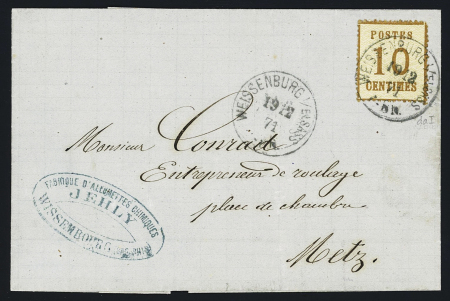 POSTES
10
CENTIMES
WEISSENBURG I/ELSASS
19 2
71
N.M.
WEISSENBURG I/ELSASS
19 2
71
N.M.
Monsieur Conrad
Entrepreneur de roulage
place de chambre
Metz.
FABRIQUE D'ALLUMETTES CHIMIQUES
J. EHLY
WISSEMBOURG (BAS-RHIN)